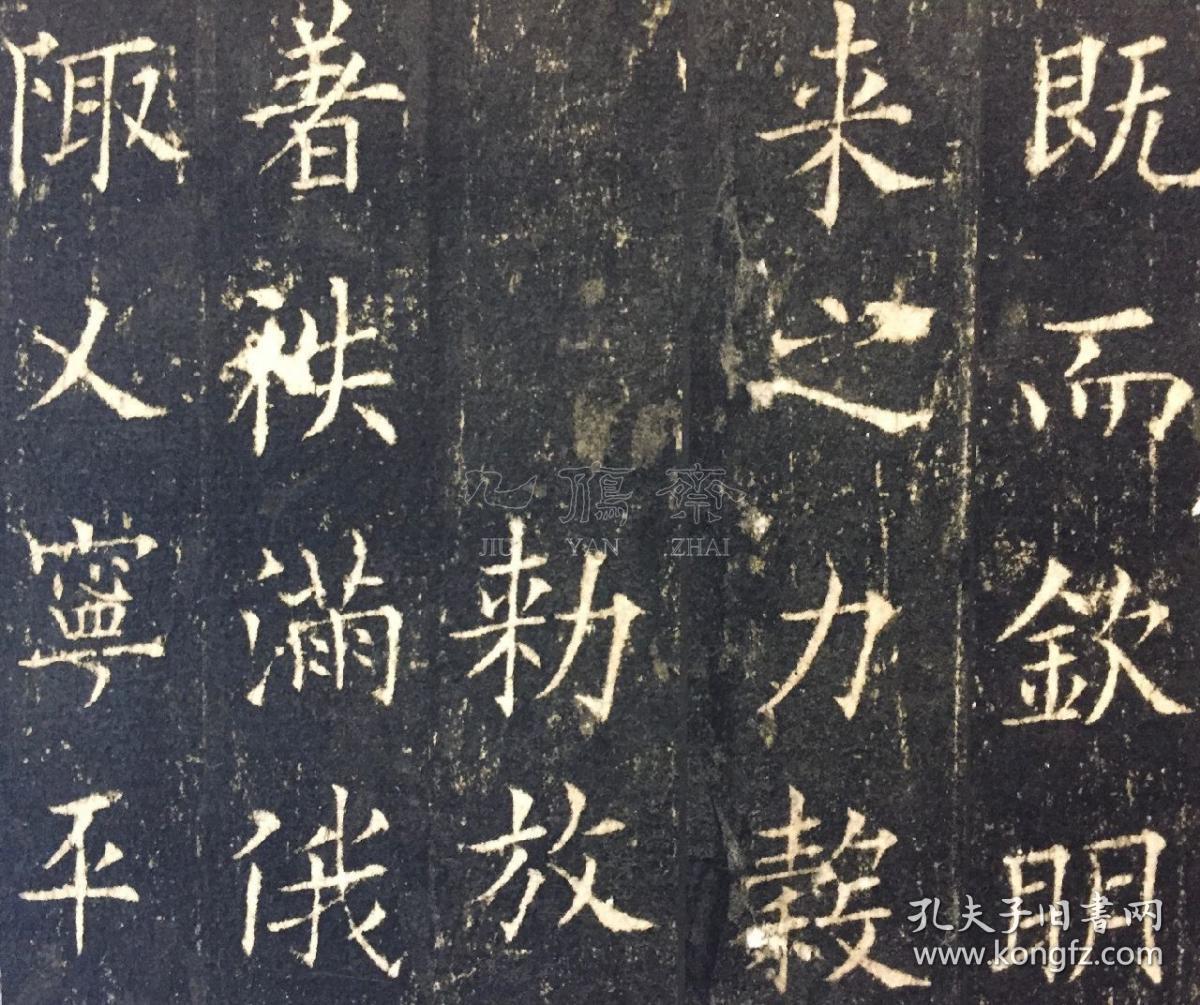 既而欽明
来之力毅
勑放
著秩滿俄
陬人寧平
九鴈齋
JIU YAN ZHAI
孔夫子旧書网
www.kongfz.com